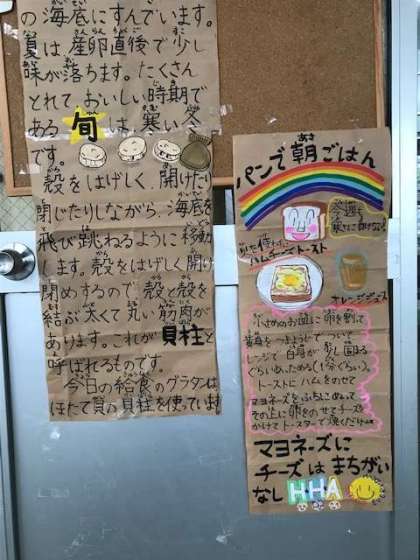 の海底にすんでいます。
夏は産卵直後で少し
味が落ちます。たくさん
とれておいしい時期で
ある旬は寒い冬
です。
殻をはげしく、開けたり
閉じたりしながら、海底を
飛び跳ねるように移動
します。殻をはげしく開け
閉めするので殻と殻を
結ぶ太くて丸い筋肉が
あります。これが貝柱と
呼ばれるものです。
今日の給食のグラタンは
ほたて貝の貝柱を使っています
パンで朝ごはん
今週も
ハムチーズトースト
オレンジジュース
小さめのお皿に卵を割って
黄身をつまようじでついて
レンジで白身が少し固る
ぐらいあたためる(1分ぐらい)。
トーストにハムをのせて
マヨネーズをふちにぬって
その上に卵をのせてチーズを
かけてトースターで焼くだけ
マヨネーズに
チーズはまちがい
なしHHA